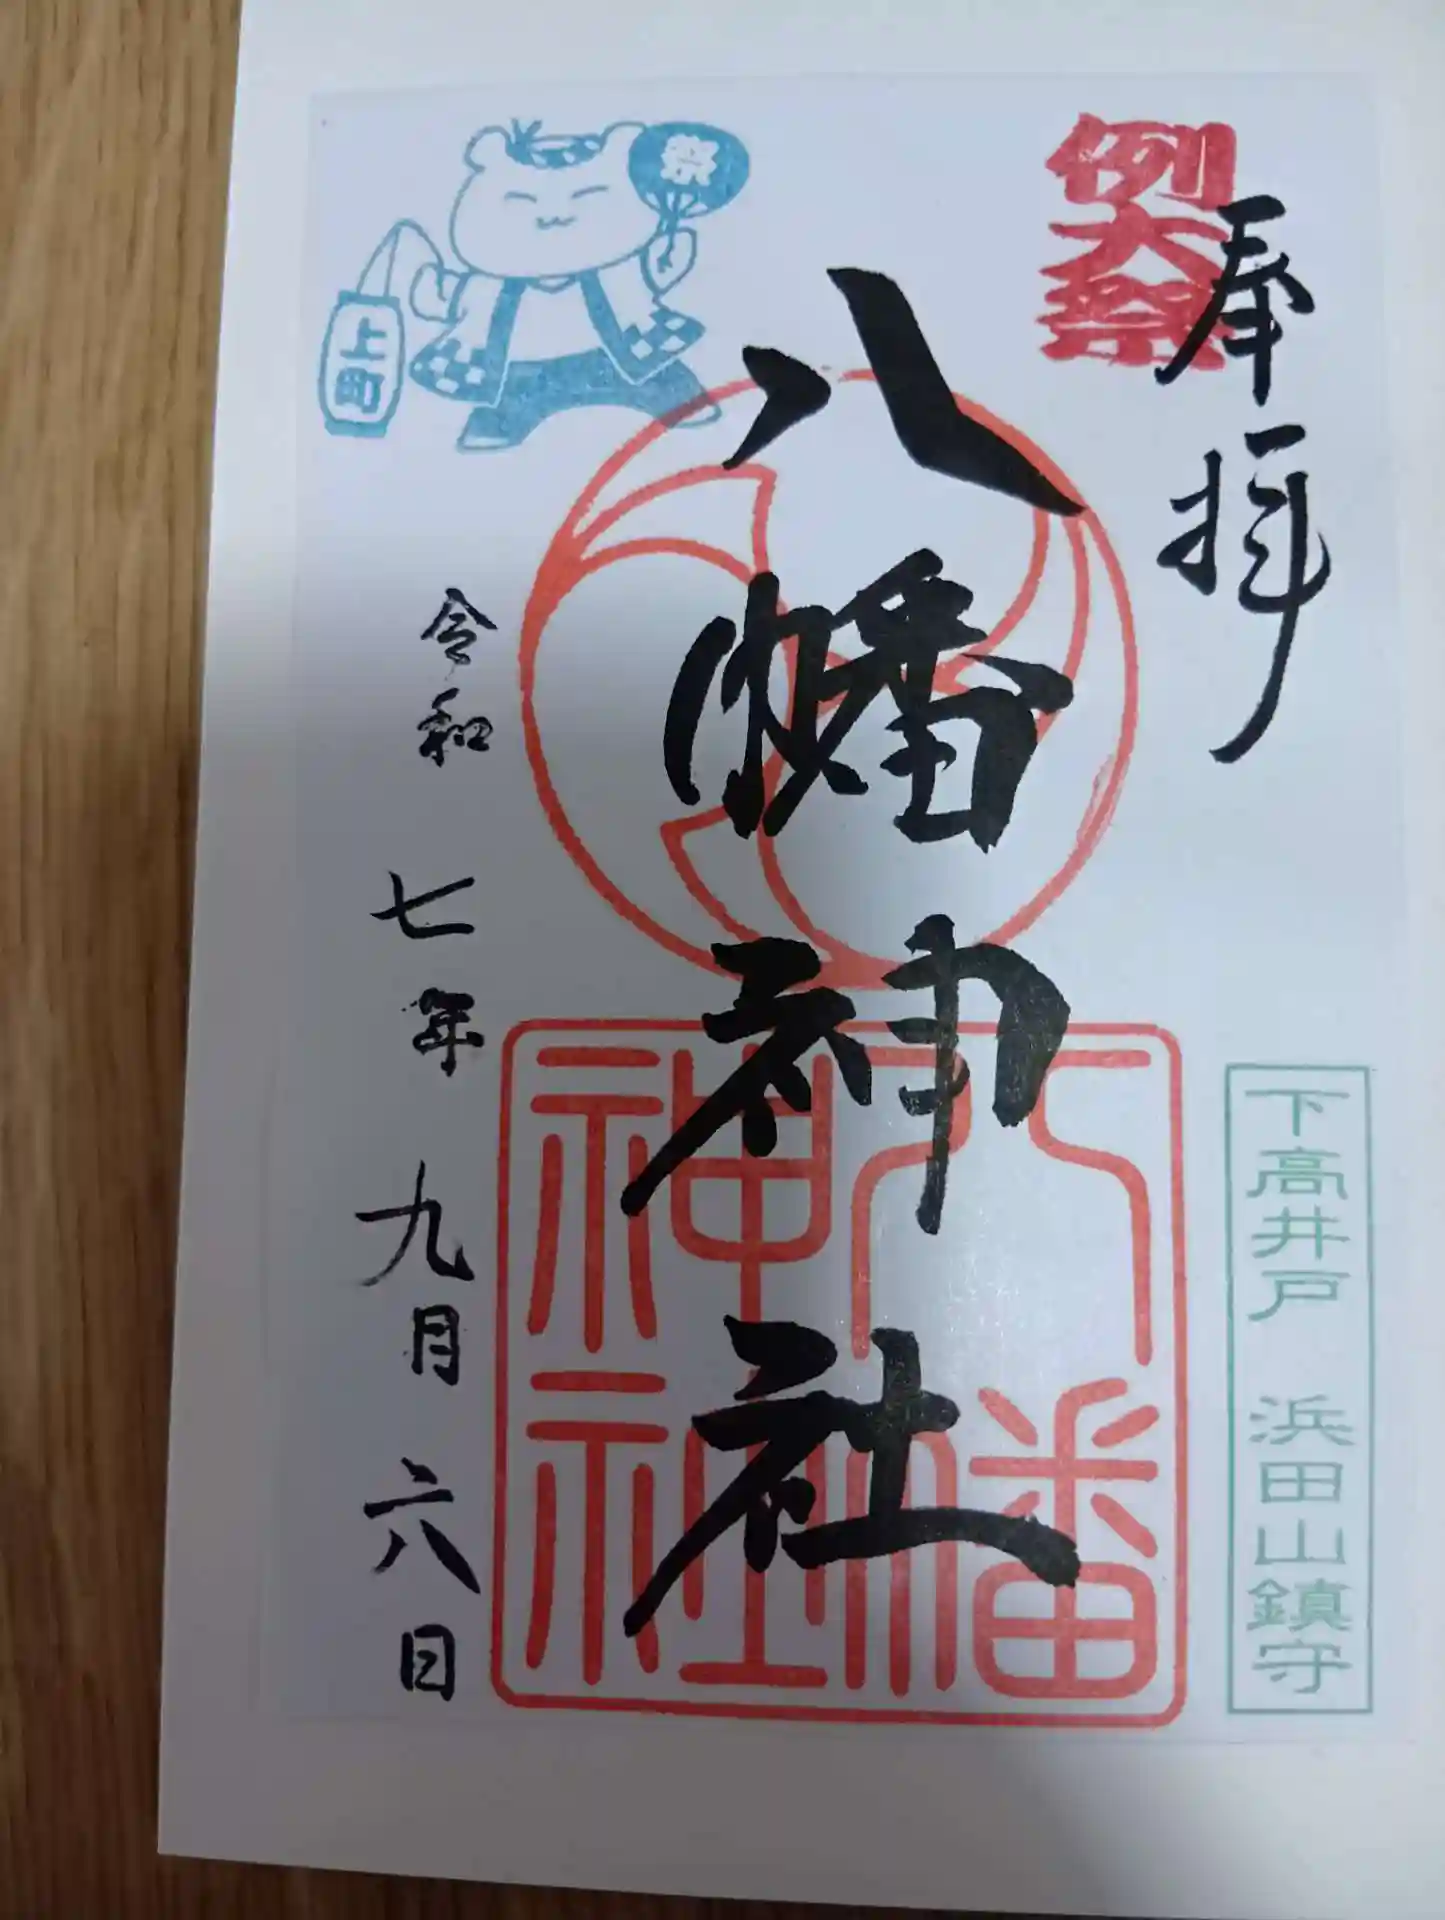 奉拝
例大祭
下高井戸 浜田山鎮守
八幡神社
八幡神社
祭
上町
令和七年九月六日